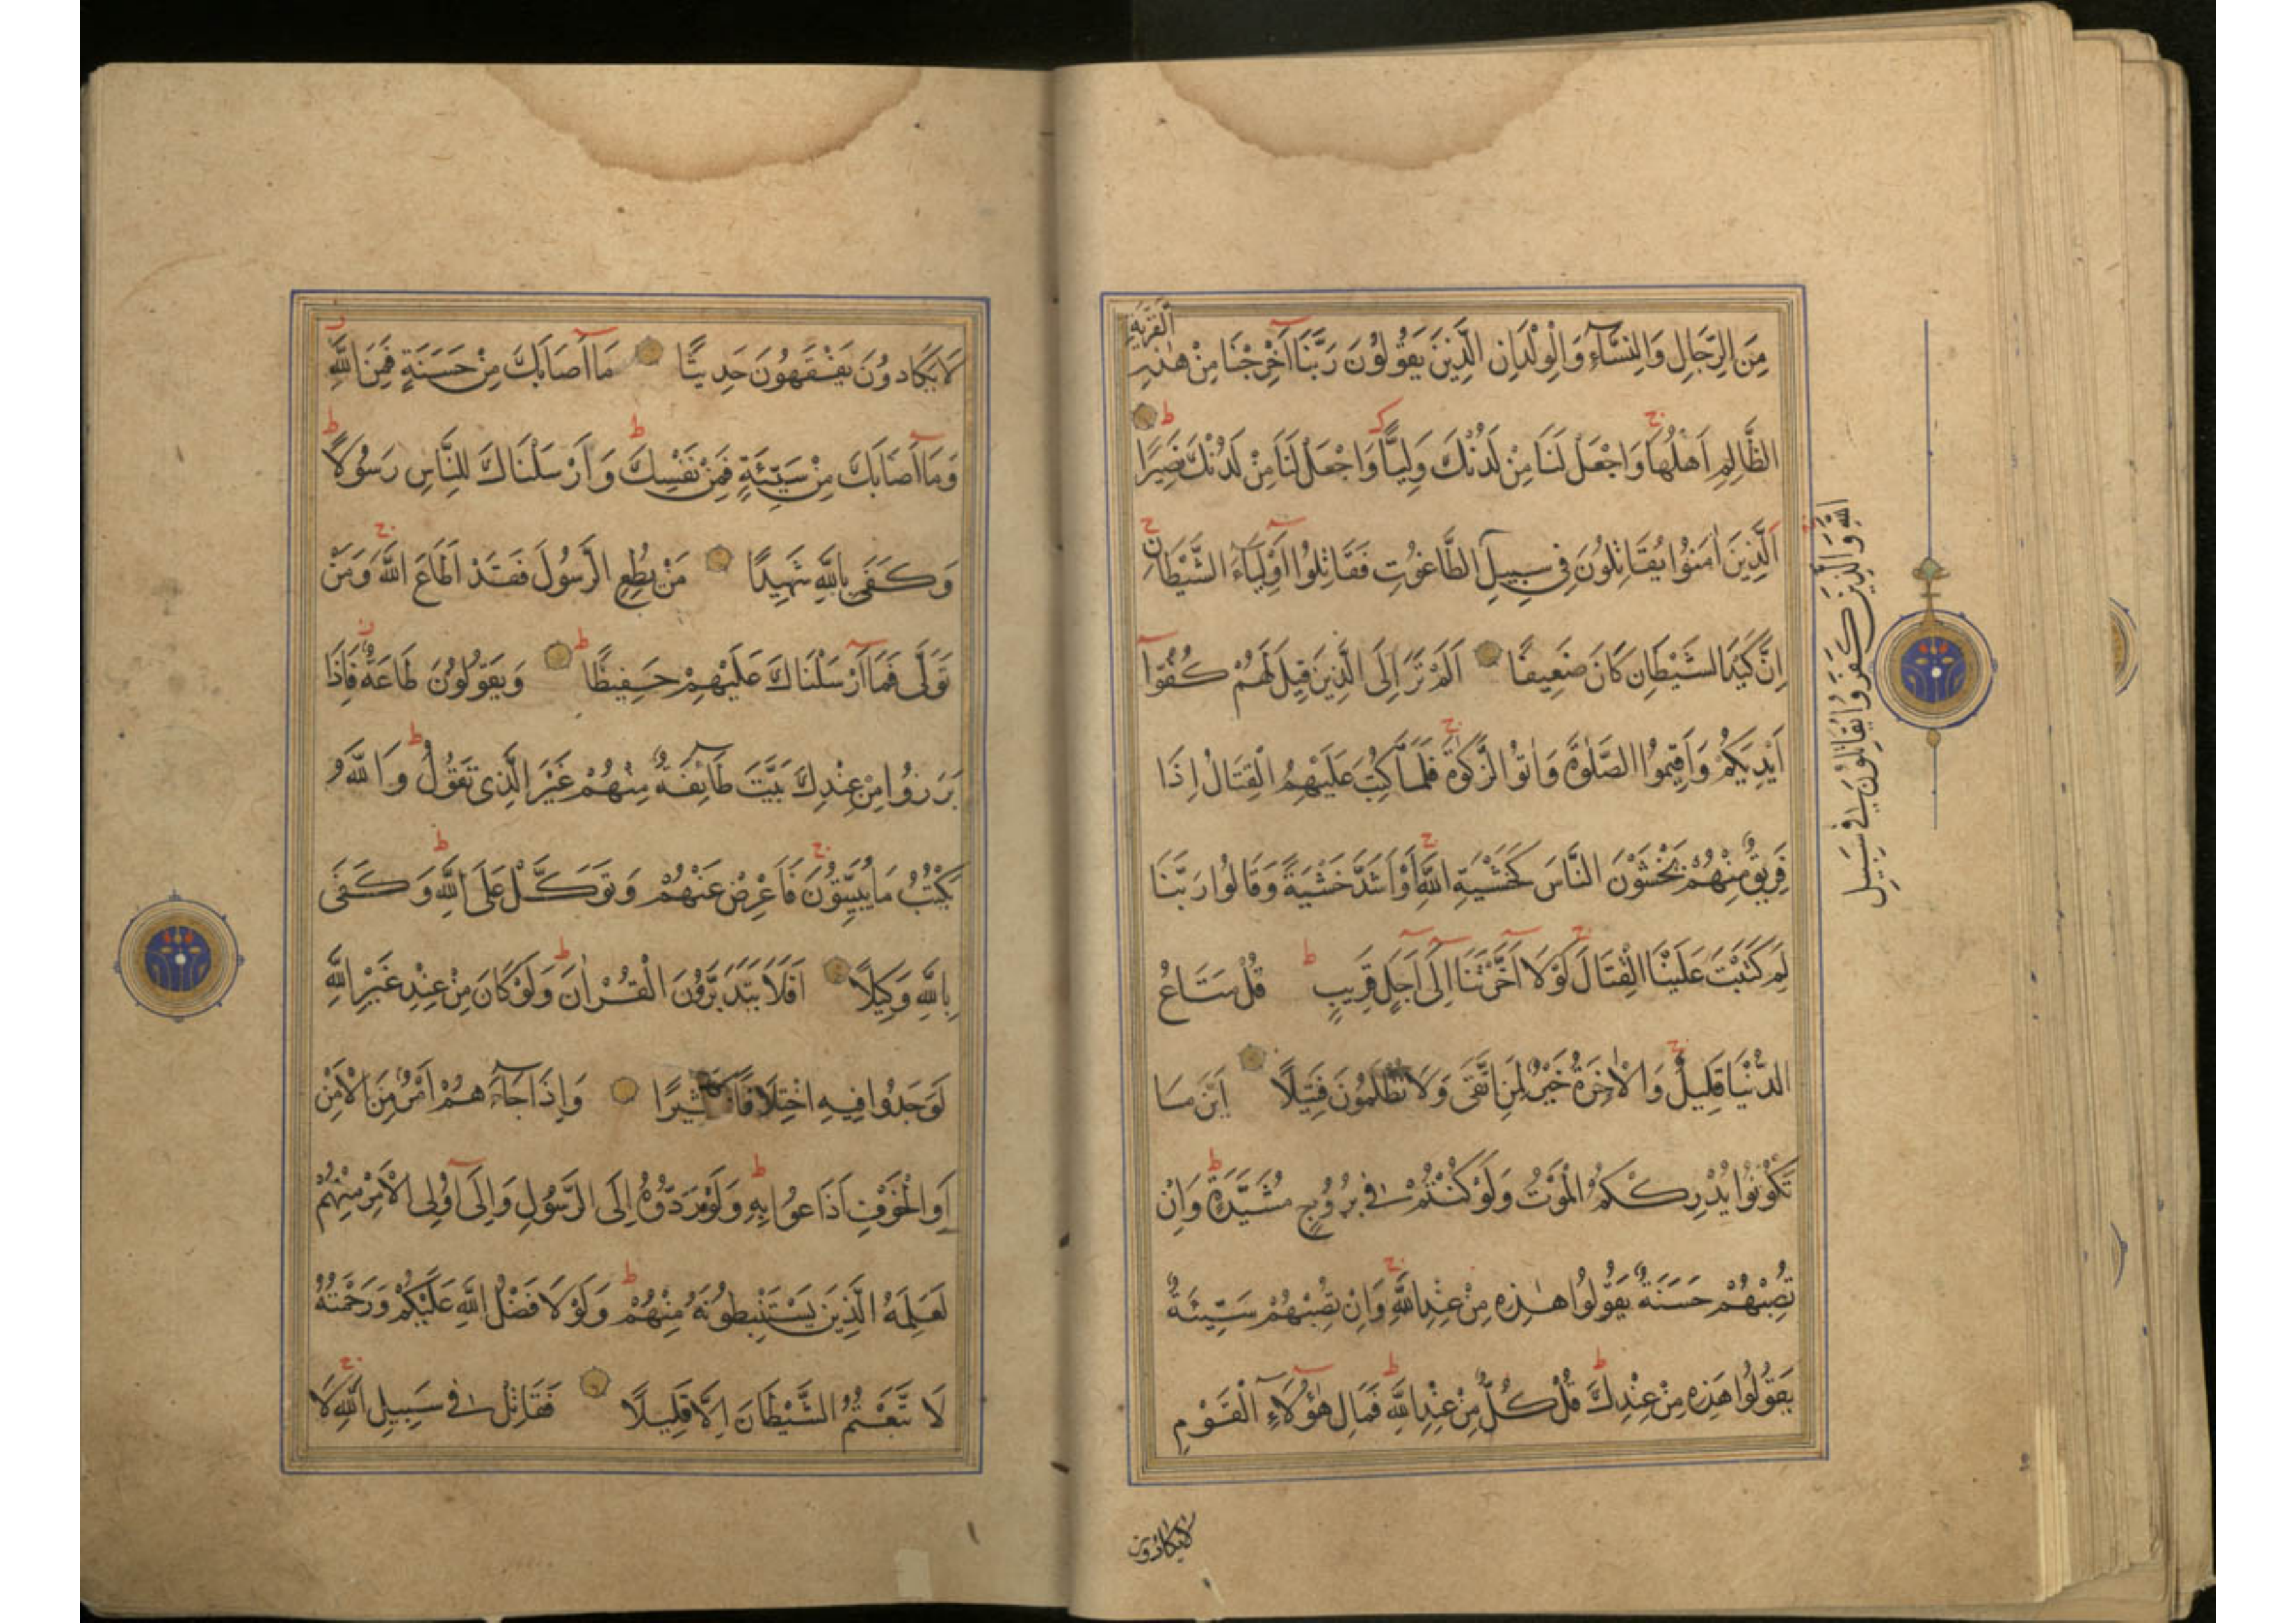 مِنَ الرِّجَالِ وَالنِّسَآءِ وَالْوِلْدَانِ الَّذِينَ يَقُولُونَ رَبَّنَا أَخْرِجْنَا مِنْ هٰذِهِ الْقَرْيَةِ
الظَّالِمِ أَهْلُهَا وَاجْعَلْ لَنَا مِنْ لَدُنْكَ وَلِيًّا وَاجْعَلْ لَنَا مِنْ لَدُنْكَ نَصِيرًا
اَلَّذِينَ اٰمَنُوا يُقَاتِلُونَ فِي سَبِيلِ الطَّاغُوتِ فَقَاتِلُوا أَوْلِيَآءَ الشَّيْطَانِ
اللّٰهِ وَالَّذِينَ كَفَرُوا يُقَاتِلُونَ فِي سَبِيلِ
إِنَّ كَيْدَ الشَّيْطَانِ كَانَ ضَعِيفًا أَلَمْ تَرَ إِلَى الَّذِينَ قِيلَ لَهُمْ كُفُّوٓا
أَيْدِيَكُمْ وَأَقِيمُوا الصَّلٰوةَ وَاٰتُوا الزَّكٰوةَ فَلَمَّا كُتِبَ عَلَيْهِمُ الْقِتَالُ إِذَا
فَرِيقٌ مِنْهُمْ يَخْشَوْنَ النَّاسَ كَخَشْيَةِ اللّٰهِ أَوْ أَشَدَّ خَشْيَةً وَقَالُوا رَبَّنَا
لِمَ كَتَبْتَ عَلَيْنَا الْقِتَالَ لَوْلَا أَخَّرْتَنَا إِلَى أَجَلٍ قَرِيبٍ قُلْ مَتَاعُ
الدُّنْيَا قَلِيلٌ وَالْاٰخِرَةُ خَيْرٌ لِمَنِ اتَّقَى وَلَا تُظْلَمُونَ فَتِيلًا أَيْنَ مَا
تَكُونُوا يُدْرِكْكُمُ الْمَوْتُ وَلَوْ كُنْتُمْ فِي بُرُوجٍ مُشَيَّدَةٍ وَإِنْ
تُصِبْهُمْ حَسَنَةٌ يَقُولُوا هٰذِهِ مِنْ عِنْدِ اللّٰهِ وَإِنْ تُصِبْهُمْ سَيِّئَةٌ
يَقُولُوا هَذِهِ مِنْ عِنْدِكَ قُلْ كُلٌّ مِنْ عِنْدِ اللّٰهِ فَمَالِ هٰؤُلَآءِ الْقَوْمِ
لَا يَكَادُونَ
لَا يَكَادُونَ يَفْقَهُونَ حَدِيثًا مَا أَصَابَكَ مِنْ حَسَنَةٍ فَمِنَ اللّٰهِ
وَمَا أَصَابَكَ مِنْ سَيِّئَةٍ فَمِنْ نَفْسِكَ وَأَرْسَلْنَاكَ لِلنَّاسِ رَسُولًا
وَكَفَى بِاللّٰهِ شَهِيدًا مَنْ يُطِعِ الرَّسُولَ فَقَدْ أَطَاعَ اللّٰهَ وَمَنْ
تَوَلَّى فَمَا أَرْسَلْنَاكَ عَلَيْهِمْ حَفِيظًا وَيَقُولُونَ طَاعَةٌ فَإِذَا
بَرَزُوا مِنْ عِنْدِكَ بَيَّتَ طَآئِفَةٌ مِنْهُمْ غَيْرَ الَّذِي تَقُولُ وَاللّٰهُ
يَكْتُبُ مَا يُبَيِّتُونَ فَأَعْرِضْ عَنْهُمْ وَتَوَكَّلْ عَلَى اللّٰهِ وَكَفَى
بِاللّٰهِ وَكِيلًا أَفَلَا يَتَدَبَّرُونَ الْقُرْاٰنَ وَلَوْ كَانَ مِنْ عِنْدِ غَيْرِ اللّٰهِ
لَوَجَدُوا فِيهِ اخْتِلَافًا كَثِيرًا وَإِذَا جَآءَهُمْ أَمْرٌ مِنَ الْأَمْنِ
أَوِ الْخَوْفِ أَذَاعُوا بِهِ وَلَوْ رَدُّوهُ إِلَى الرَّسُولِ وَإِلَى أُولِي الْأَمْرِ مِنْهُمْ
لَعَلِمَهُ الَّذِينَ يَسْتَنْبِطُونَهُ مِنْهُمْ وَلَوْلَا فَضْلُ اللّٰهِ عَلَيْكُمْ وَرَحْمَتُهُ
لَاتَّبَعْتُمُ الشَّيْطَانَ إِلَّا قَلِيلًا فَقَاتِلْ فِي سَبِيلِ اللّٰهِ لَا